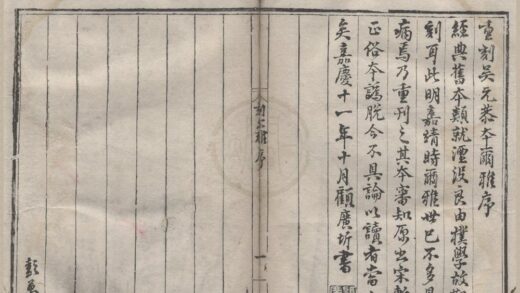 重刻吳元恭本爾雅序
經典舊本類就湮没良由樸學故
刻耳此明嘉靖時爾雅世已不多見
病焉乃重刊之其本審知原出宋
正俗本譌脱今不具論以讀者當
矣嘉慶十一年十月顧廣圻書
刻爾雅序
一
彭